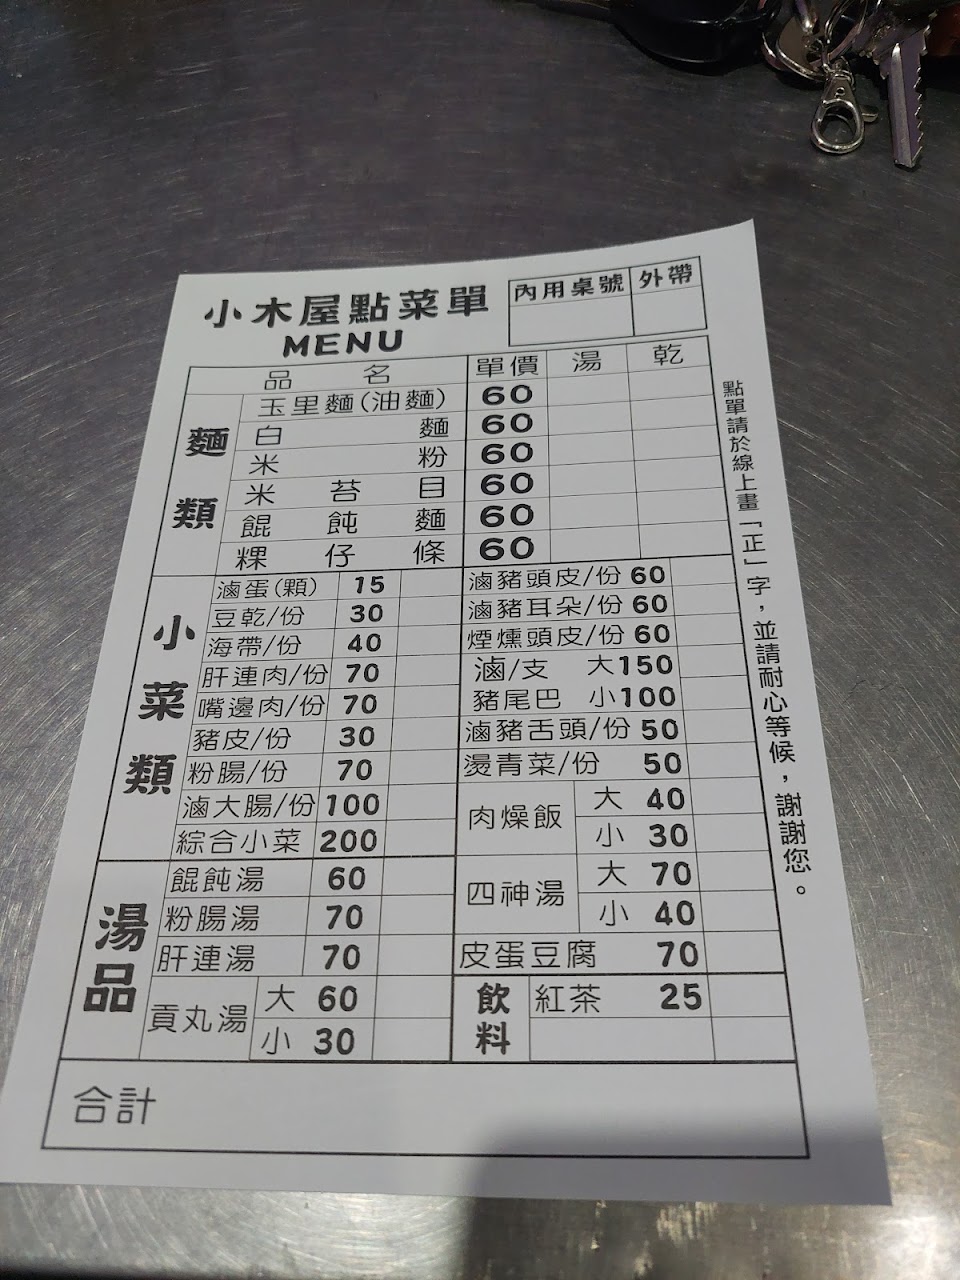 小木屋點菜單
MENU
內用桌號 外帶
品名 單價 湯 乾
麵類
玉里麵(油麵) 60
白麵 60
米粉 60
米苔目 60
餛飩麵 60
粿仔條 60
小菜類
滷蛋(顆) 15
豆乾/份 30
海帶/份 40
肝連肉/份 70
嘴邊肉/份 70
豬皮/份 30
粉腸/份 70
滷大腸/份 100
綜合小菜 200
滷豬頭皮/份 60
滷豬耳朵/份 60
煙燻頭皮/份 60
滷/支 大150
豬尾巴 小100
滷豬舌頭/份 50
燙青菜/份 50
肉燥飯 大 40
小 30
四神湯 大 70
小 40
皮蛋豆腐 70
湯品
餛飩湯 60
粉腸湯 70
肝連湯 70
貢丸湯 大 60
小 30
飲料
紅茶 25
合計
點單請於線上畫「正」字，並請耐心等候，謝謝您。